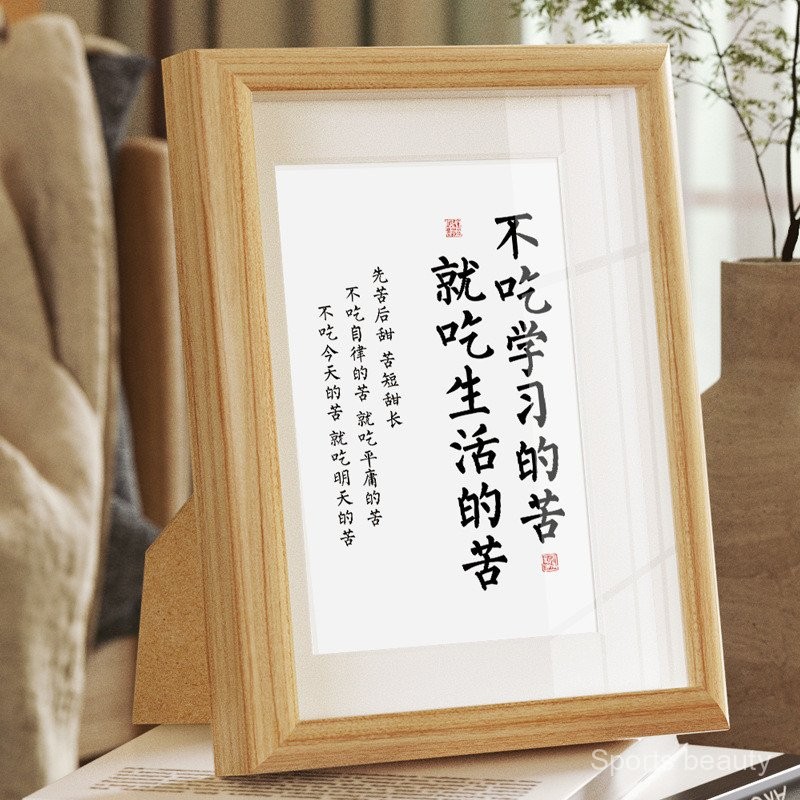 不吃学习的苦
就吃生活的苦
先苦后甜 苦短甜长
不吃自律的苦 就吃平庸的苦
不吃今天的苦 就吃明天的苦
Sports beauty